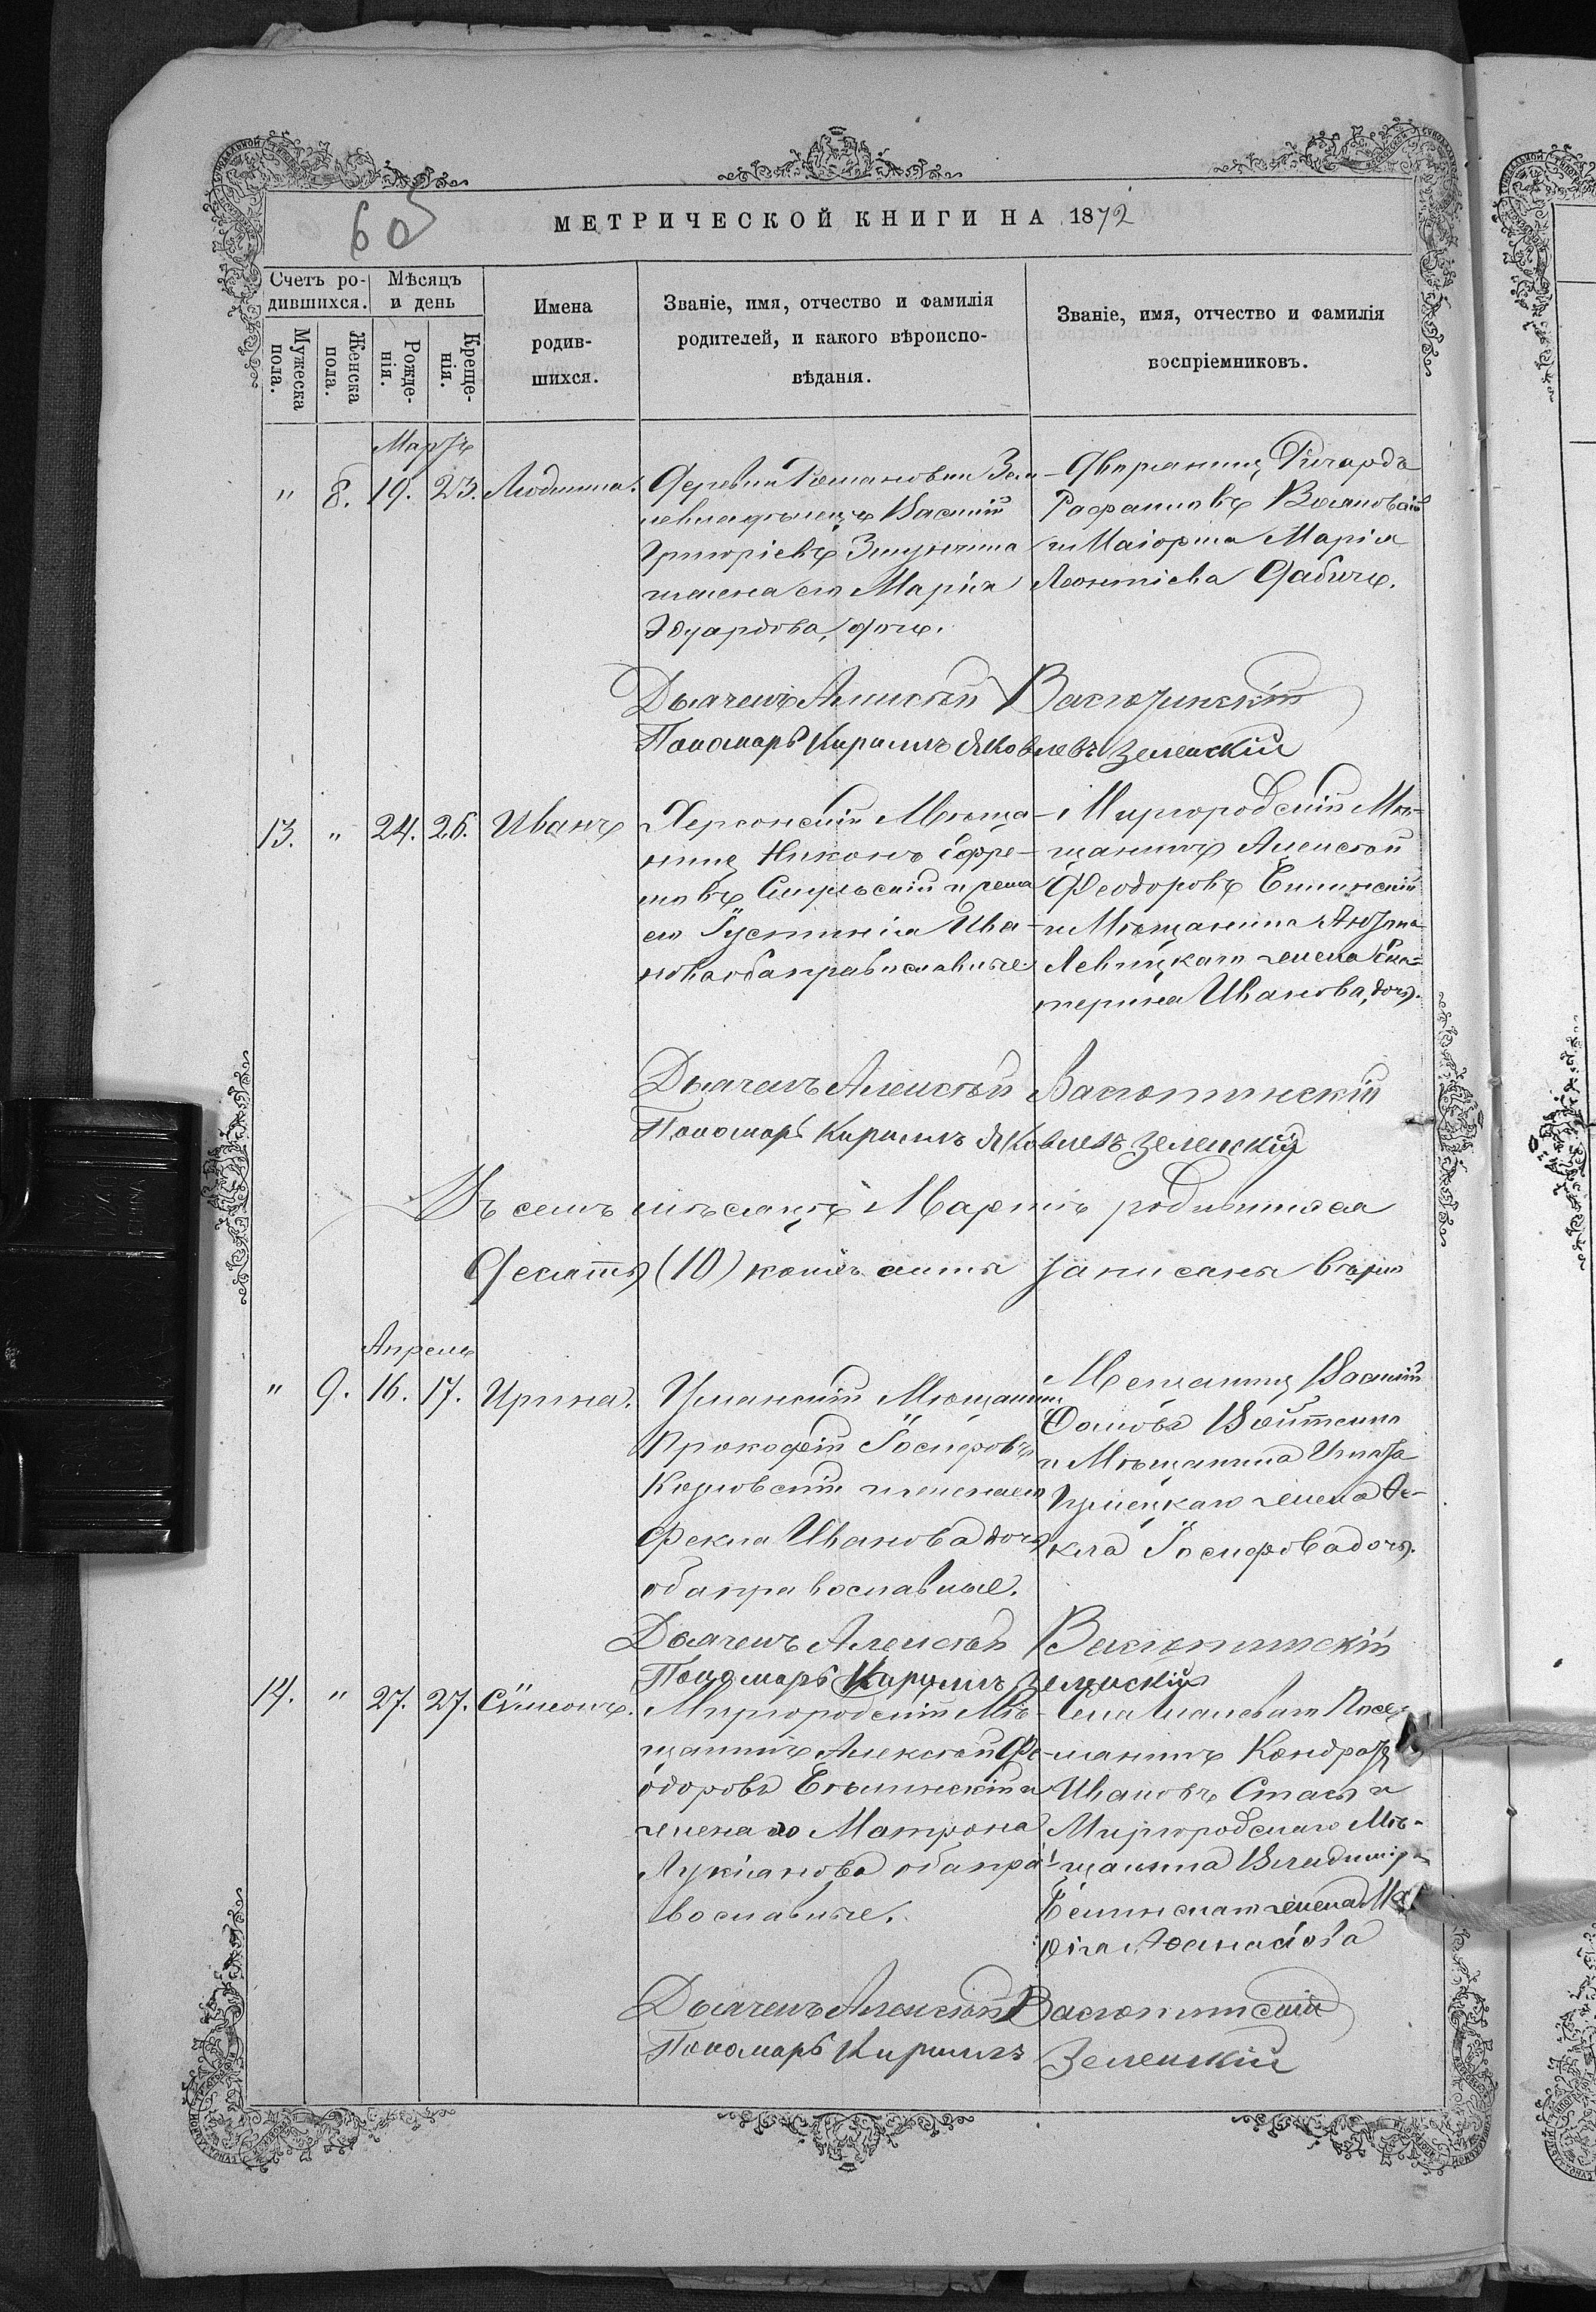 605
МЕТРИЧЕСКОЙ КНИГИ НА 1872
Счетъ ро-
дившихся.
Мѣсяцъ
и день
Мужеска
пола.
Женска
пола.
Рожде-
нія.
Креще-
нія.
Имена
родив-
шихся.
Званіе, имя, отчество и фамилія
родителей, и какого вѣроиспо-
вѣданія.
Званіе, имя, отчество и фамилія
воспріемниковъ.
Мартъ
" 8. 19. 23. Людмила.
Деревни Романовки Зем-
левладѣлецъ Василій
Григорьевъ
жена его Марія
Эдуардова, дочь.
Дворянинъ Ричардъ
и Маіорша Марія
Леонтіева Дабичъ.
Дьячекъ Алексѣй Васютинскій
Пономарь Кириллъ Яковлевъ Зеленскій
13. " 24. 26. Иванъ
Херсонскій Мѣща-
нинъ Никонъ Ефре-
мовъ и жена
его Іустинія Ива-
нова оба православные.
Миргородскій Мѣ-
щанинъ Алексѣй
Феодоровъ
и Мѣщанина Антона
Левицкаго жена Ека-
терина Иванова, дочь.
Дьячекъ Алексѣй Васютинскій
Пономарь Кириллъ Яковлевъ Зеленскій
Въ семъ мѣсяцѣ Мартѣ родившихся
Десять (10) коихъ акты записаны вѣрно
Апрель
" 9. 16. 17. Ирина.
Уманскій Мѣщанинъ
Прокофій Іосифовъ
и жена его
Фекла Иванова дочь
оба православные.
Мещанинъ Василій
Фомовъ
и Мѣщанина Игната
жена Фе-
кла Іосифова дочь.
Дьячекъ Алексѣй Васютинскій
Пономарь Кириллъ Зеленскій
14. " 27. 27. Сѵмеонъ.
Миргородскій Мѣ-
щанинъ Алексѣй Фе-
одоровъ и
жена его Матрона
Лукіанова оба пра-
вославные.
Села Посе-
лянинъ Кондратъ
Ивановъ Стась и
Миргородскаго Мѣ-
щанина Владимір
жена Ма-
рія Афанасіева
Дьячекъ Алексѣй Васютинскій
Пономарь Кириллъ Зеленскій